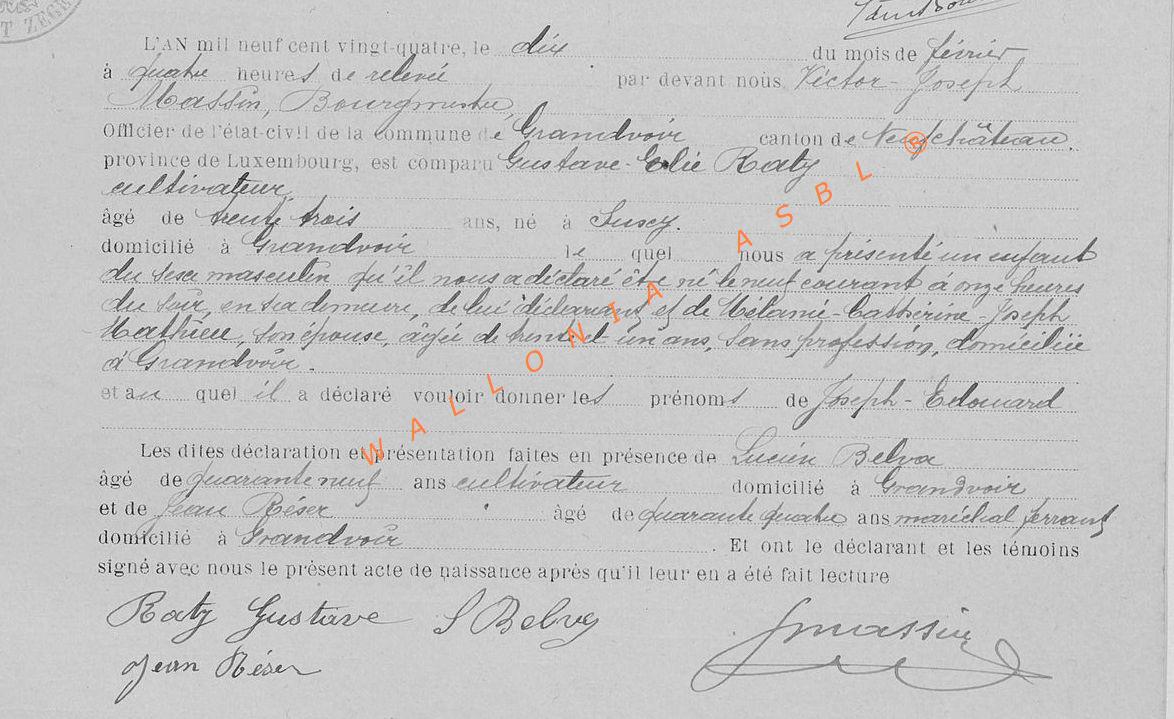 L'AN mil neuf cent vingt-quatre, le dix du mois de février
à quatre heures de relevée par devant nous Victor-Joseph
Massin, Bourgmestre,
Officier de l'état-civil de la commune de Grandvoir canton de Neufchâteau.
province de Luxembourg, est comparu Gustave-Elie Raty
cultivateur
âgé de trente trois ans, né à Suxy.
domicilié à Grandvoir le quel nous a présenté un enfant
du sexe masculin qu'il nous a déclaré être né le neuf courant à onze heures
du soir, en sa demeure, de lui déclarant et de Mélanie-Catherine-Joseph
Mathieu, son épouse, âgée de trente et un ans, sans profession, domiciliée
à Grandvoir.
et au quel il a déclaré vouloir donner les prénoms de Joseph-Edouard
Les dites déclaration et présentation faites en présence de Lucien Belva
âgé de quarante neuf ans cultivateur domicilié à Grandvoir
et de Jean Réser âgé de quarante quatre ans maréchal ferrant
domicilié à Grandvoir. Et ont le déclarant et les témoins
signé avec nous le présent acte de naissance après qu'il leur en a été fait lecture
Raty Gustave L Belva Jmassin
Jean Réser
WALLONIA ASBL ®